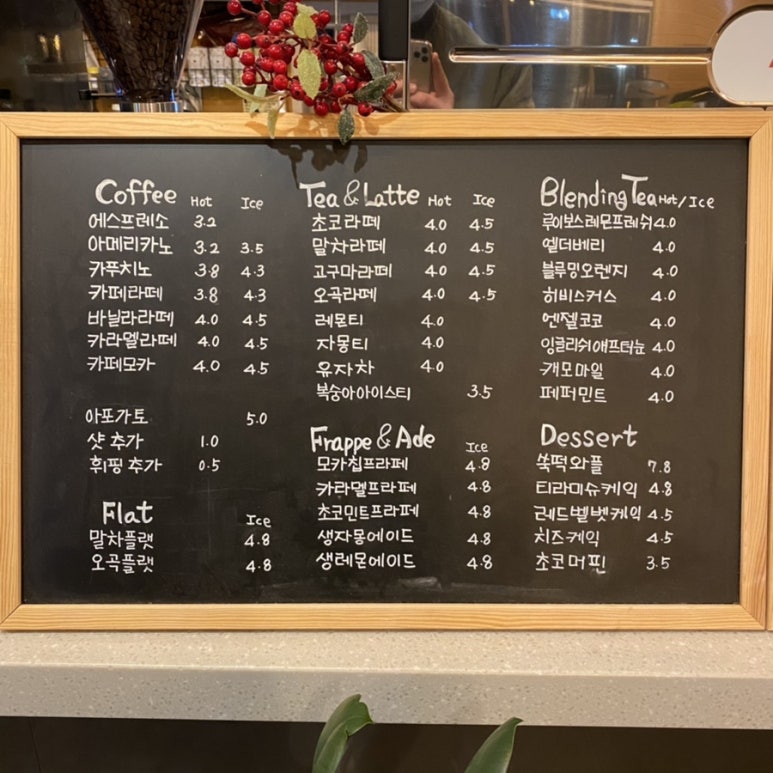 Coffee Hot Ice
에스프레소 3.2
아메리카노 3.2 3.5
카푸치노 3.8 4.3
카페라떼 3.8 4.3
바닐라라떼 4.0 4.5
카라멜라떼 4.0 4.5
카페모카 4.0 4.5
아포가토 5.0
샷 추가 1.0
휘핑 추가 0.5
Flat Ice
말차플랫 4.8
오곡플랫 4.8
Tea & Latte Hot Ice
초코라떼 4.0 4.5
말차라떼 4.0 4.5
고구마라떼 4.0 4.5
오곡라떼 4.0 4.5
레몬티 4.0
자몽티 4.0
유자차 4.0
복숭아아이스티 3.5
Frappe & Ade Ice
모카칩프라페 4.8
카라멜프라페 4.8
초코민트프라페 4.8
생자몽에이드 4.8
생레몬에이드 4.8
Blending Tea Hot/Ice
루이보스레몬프레쉬 4.0
엘더베리 4.0
블루밍오렌지 4.0
히비스커스 4.0
엔젤코코 4.0
잉글리쉬애프터눈 4.0
캐모마일 4.0
페퍼민트 4.0
Dessert
쑥떡와플 7.8
티라미슈케익 4.8
레드벨벳케익 4.5
치즈케익 4.5
초코머핀 3.5